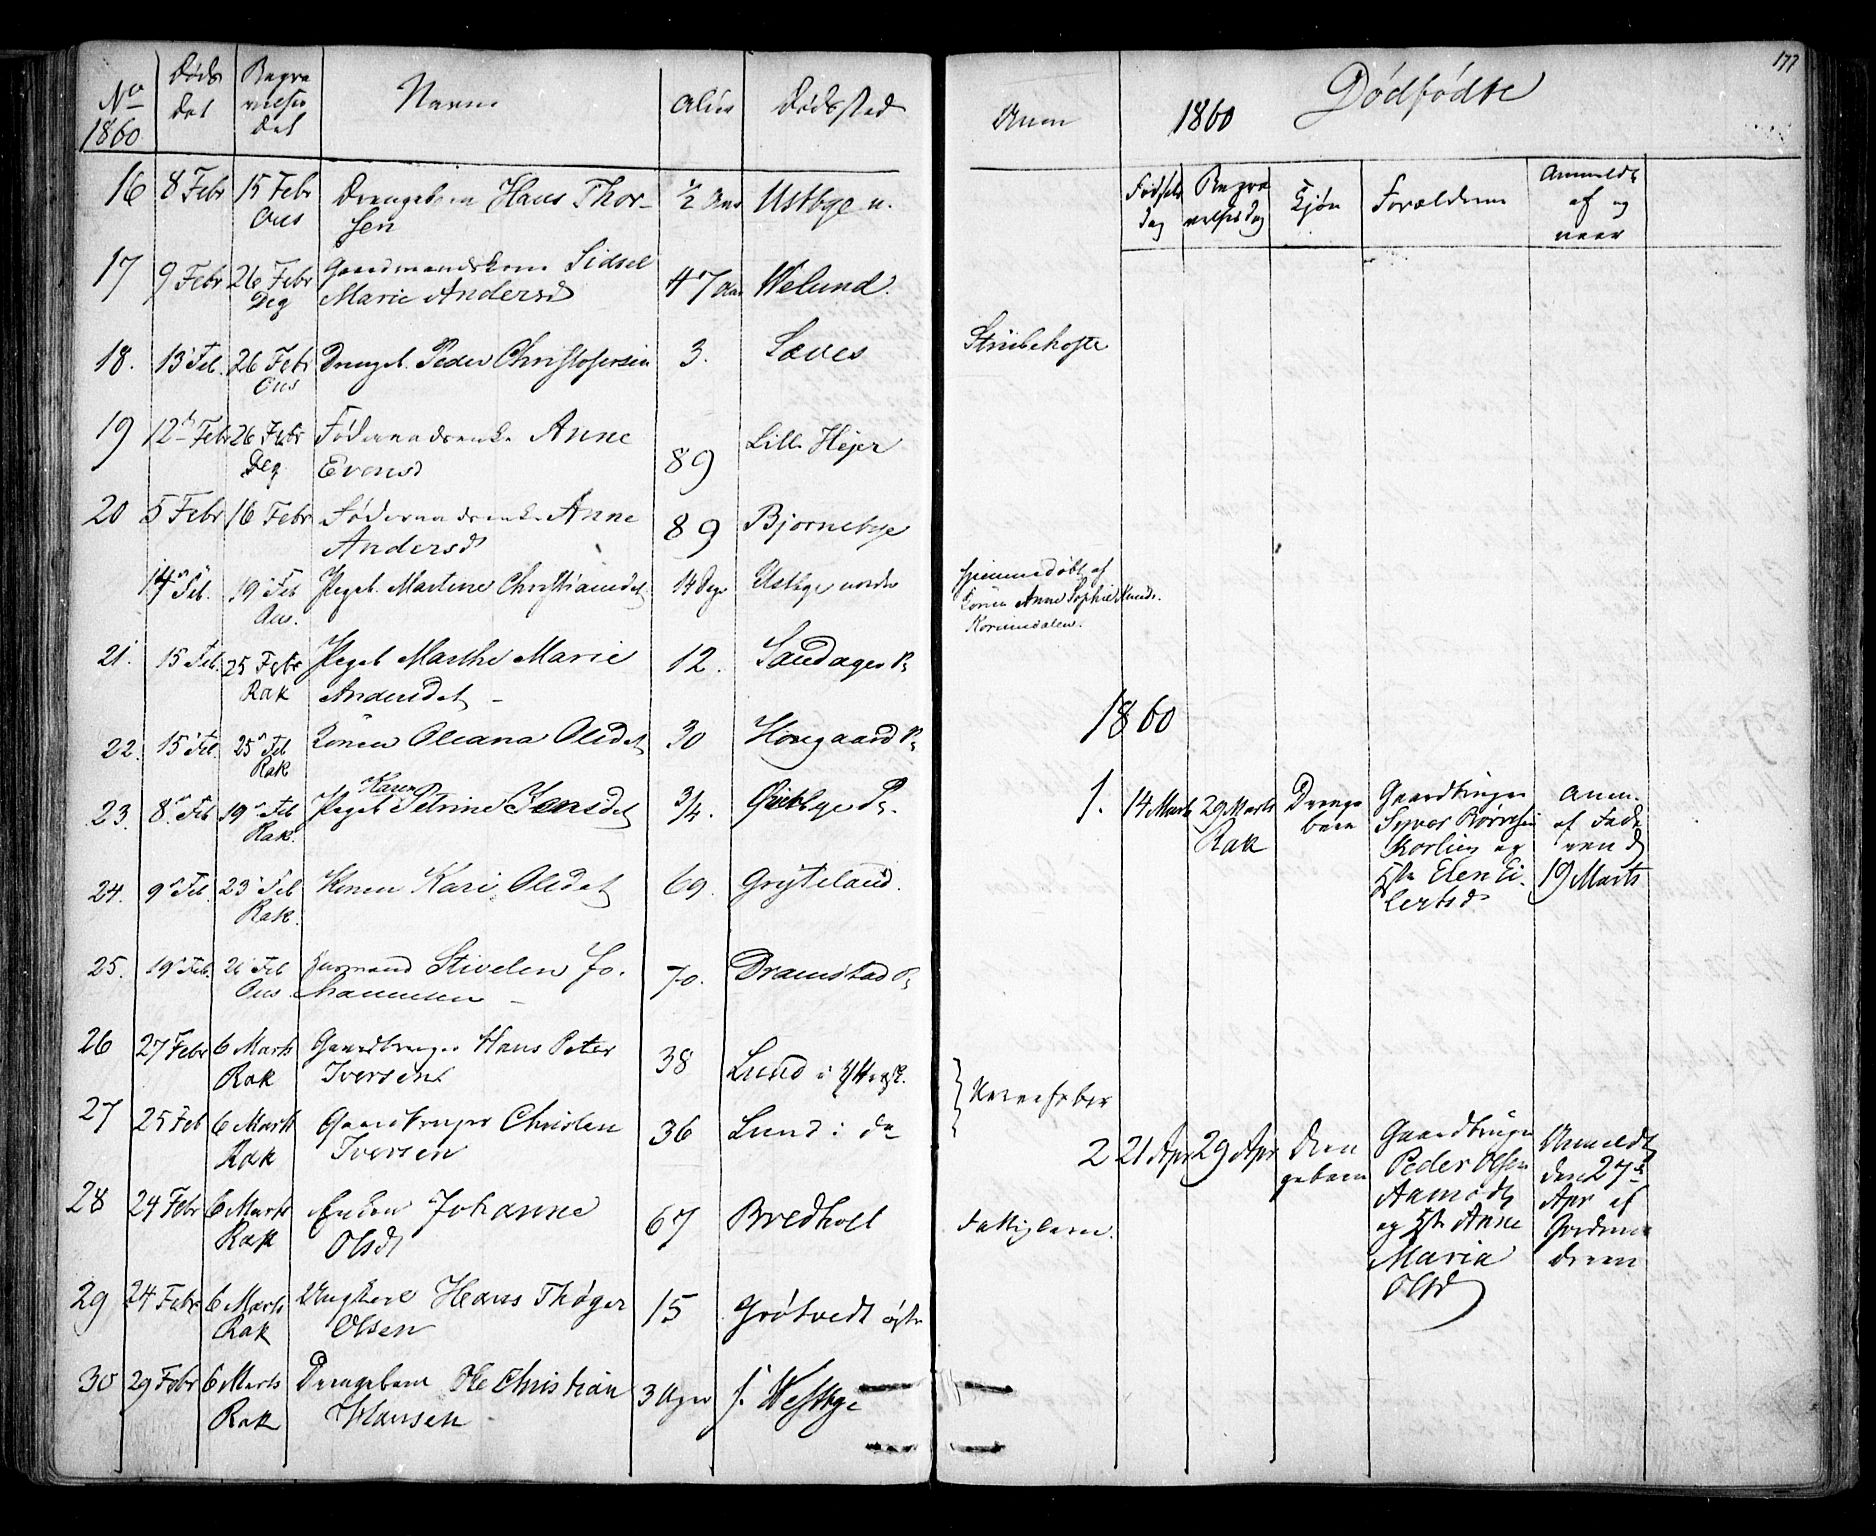 177
No 1860 | Døds dat | Begra velses dat | Navn | Alder | Dødssted | Anm
16 | 8 Febr | 15 Febr Aus | Drengebarn Hans Thor-
sen | 1/2 Aar | Ustbye n.
17 | 9 Febr | 26 Febr Deg | Gaardmandskone Sidsel
Marie Andersd | 47 Aar | Welund.
18. | 13 Feb. | 26 Febr Aus | Drengeb. Peder Christofersen | 3. | Saves | Strubehoste
19 | 12 Febr | 26 Febr Deg | Føderaadsenke Anne
Evensd | 89 | Lille Hejer
20 | 5 Febr | 16 Febr | Føderaadsenke Anne
Andersd | 89 | Bjørnebye
14 Feb. | 19 Feb Aus. | Pigeb. Martine Christiansdat | 14 Dage | Ustbye nordre | hjemmedøbt af
Konen Anne Sophie Knuds.
21. | 15 Feb. | 25 Febr Rak | Pigeb Marthe Marie
Andersdat | 12. | Sandager
22. | 15 Feb. | 25 Feb Rak | Konen Oleana Olsdat | 30 | Horgaard
23. | 8 Feb | 19 Feb Rak. | Pigeb Karen Petrine Jensdat | 3/4.
24. | 9 Feb. | 23 Feb Rak. | Konen Kari Olsdat | 69. | Gryteland.
25. | 19 Feb. | 21 Feb Aus. | Husmand Stivelen Jo-
hannesen | 70. | Dramstad
26 | 27 Febr | 6 Marts Rak | Gaardbruger Hans Peter
Iversen | 38 | Lund i | Nervefeber
27 | 25 Feb | 6 Marts Rak | Gaardbruger Christen
Iversen | 36 | Lund i do
28 | 24 Febr | 6 Marts Rak | Enken Johanne
Olsdt | 67 | Bredholt | Fattiglem.
29 | 24 Febr | 6 Marts Rak | Ungkarl Hans Thøger
Olsen | 15 | Grøtvedt østr
30 | 29 Febr | 6 Marts Rak | Drengebarn Ole Christian
Hansen | 3 Uger | Westbye
1860 Dødfødte
Fødsels dag | Begra velses dag | Kjøn | Forældrene | Anmeldt af og naar
1860
1. | 14 Marts | 29 Marts Rak | Drenge
barn | Gaardbruger
Syver
Korlien og
Hst Elen Ei-
lertsd | Anm.
af Fade
ren d
19 Marts
2 | 21 Apr | 29 Apr | Dren
gebarn | Gaardbruger
Peder Olsen
Aamodt
og Hst Anne
Maria
Olsd | Anmeldt
den 27de
Apr af